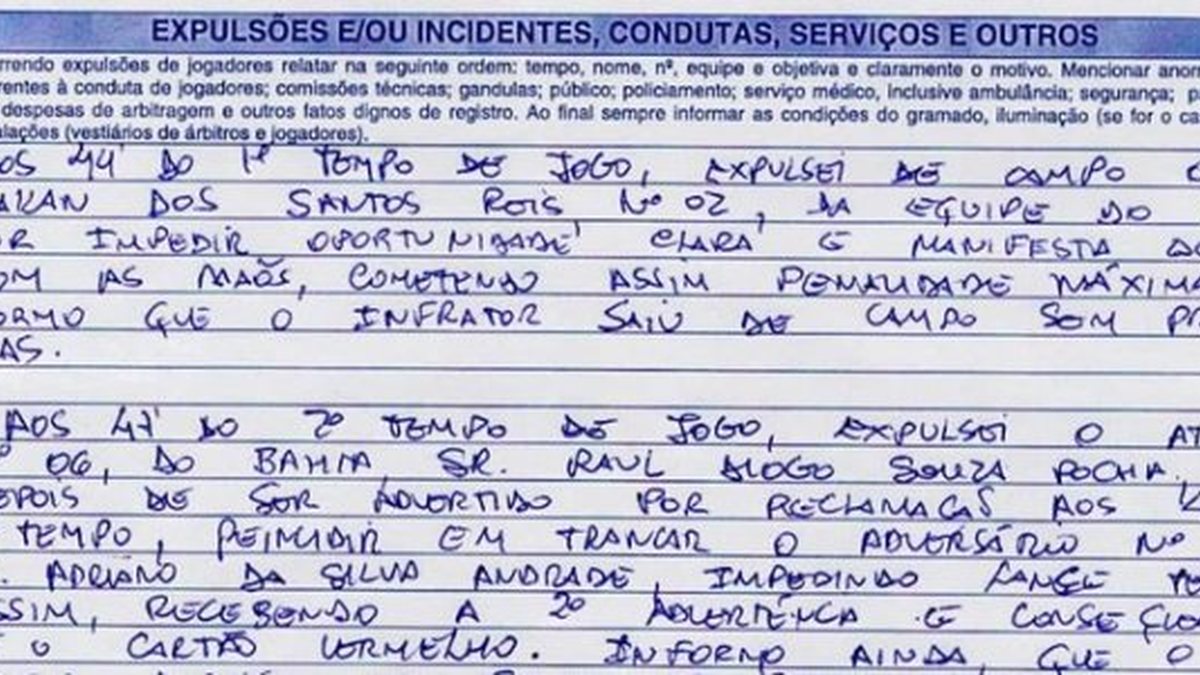 EXPULSÕES E/OU INCIDENTES, CONDUTAS, SERVIÇOS E OUTROS
rrendo expulsões de jogadores relatar na seguinte ordem: tempo, nome, nº, equipe e objetiva e claramente o motivo. Mencionar anor
rentes à conduta de jogadores; comissões técnicas; gandulas; público; policiamento; serviço médico, inclusive ambulância; segurança; p
despesas de arbitragem e outros fatos dignos de registro. Ao final sempre informar as condições do gramado, iluminação (se for o ca
alações (vestiários de árbitros e jogadores).
OS 44' DO 1º TEMPO DE JOGO, EXPULSEI DE CAMPO O
DOS SANTOS REIS Nº 02, DA EQUIPE DO
OR IMPEDIR OPORTUNIDADE CLARA E MANIFESTA DE
OM AS MAÕS, COMETENDO ASSIM PENALIDADE MÁXIMA
ORMO QUE O INFRATOR SAIU DE CAMPO SEM PR
AS.
AOS 47' DO 2º TEMPO DE JOGO, EXPULSEI O AT
º 06, DO BAHIA SR. RAUL DIOGO SOUZA ROCHA.
EPOIS DE SER ADVERTIDO POR RECLAMAÇÃS AOS
TEMPO, REINCIDIR EM TRANCAR O ADVERSÁRIO Nº
. ADRIANO DA SILVA ANDRADE, IMPEDINDO LANCE
SSIM, RECEBENDO A 2º ADVERTÊNCIA E CONSEQUE
E O CARTÃO VERMELHO. INFORMO AINDA, QUE O